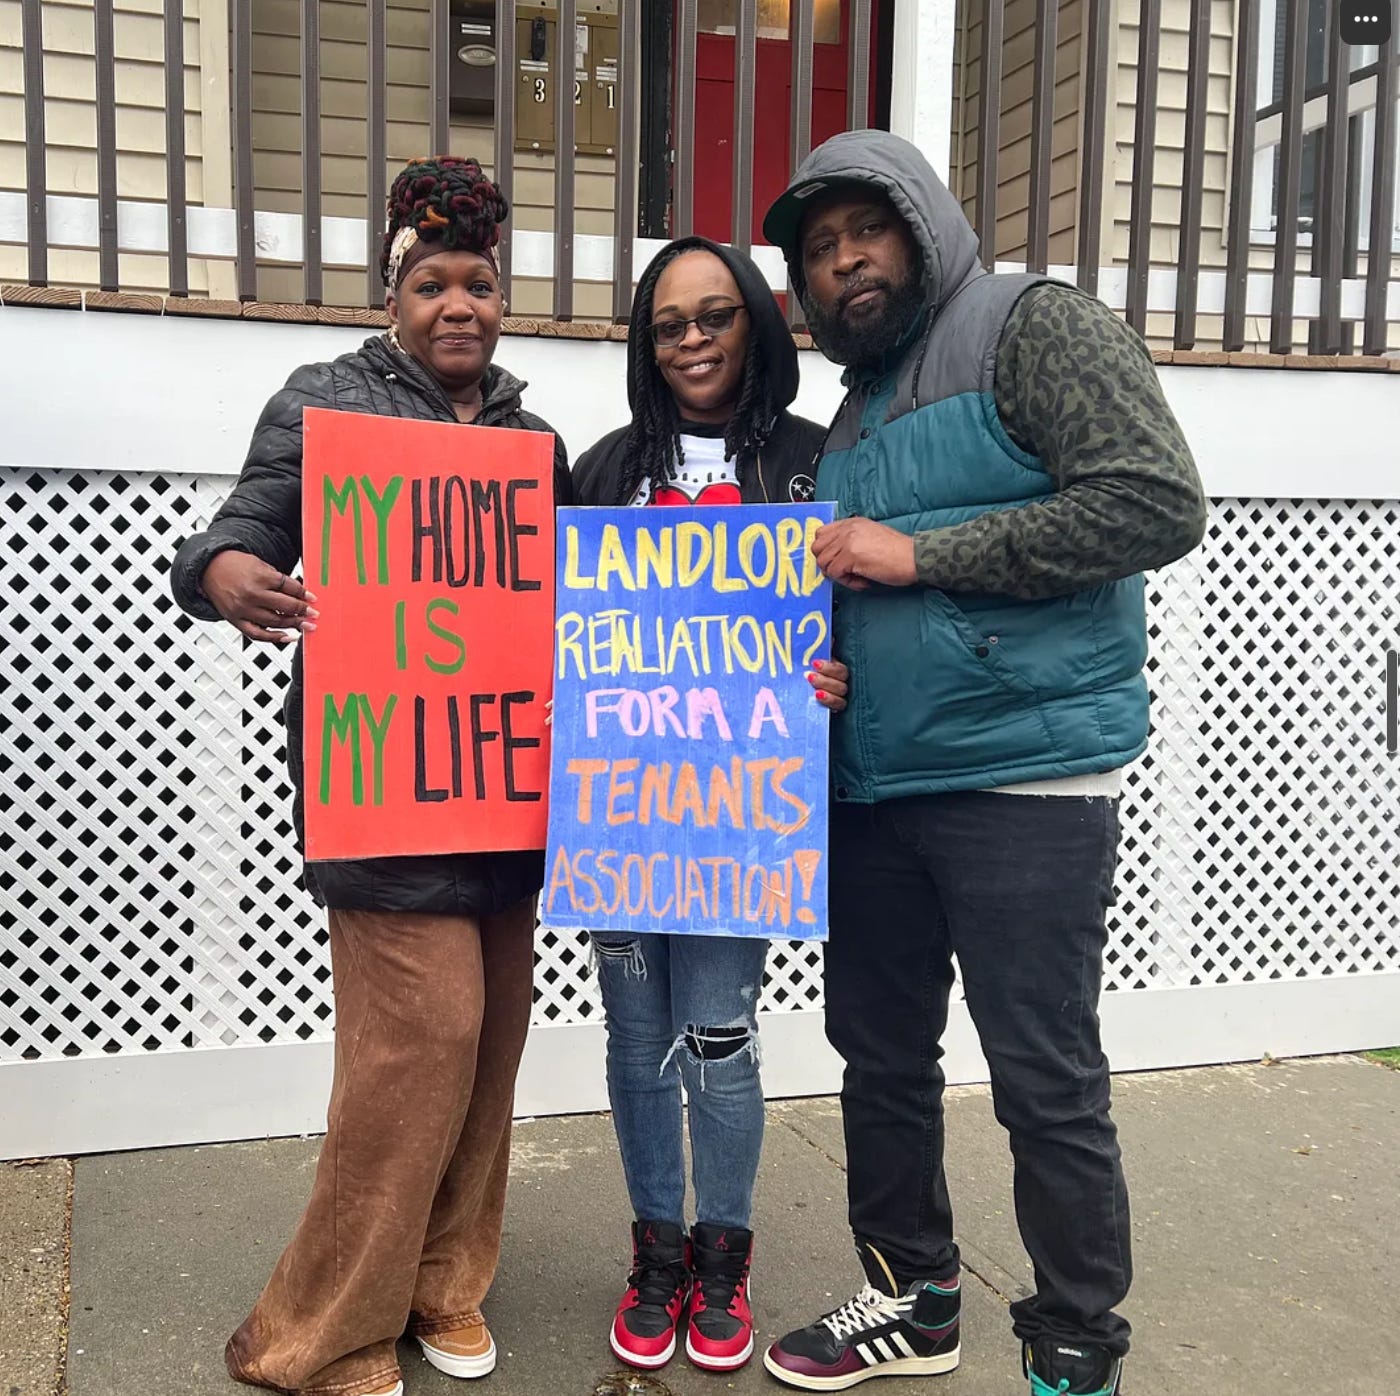 3 2 1
MY HOME
IS
MY LIFE
LANDLORD
RETALIATION?
FORM A
TENANTS
ASSOCIATION!
adidas